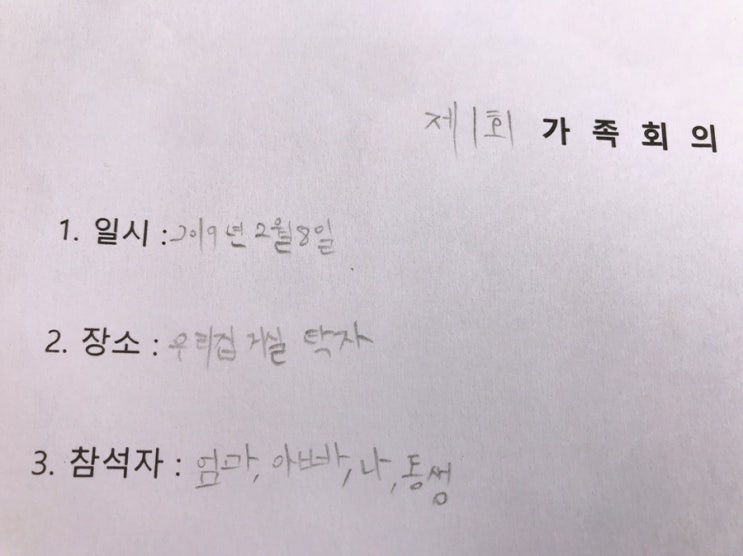 제1회 가족회의
1. 일시 : 2019년 2월 8일
2. 장소 : 우리집 거실 탁자
3. 참석자 : 엄마, 아빠, 나, 동생